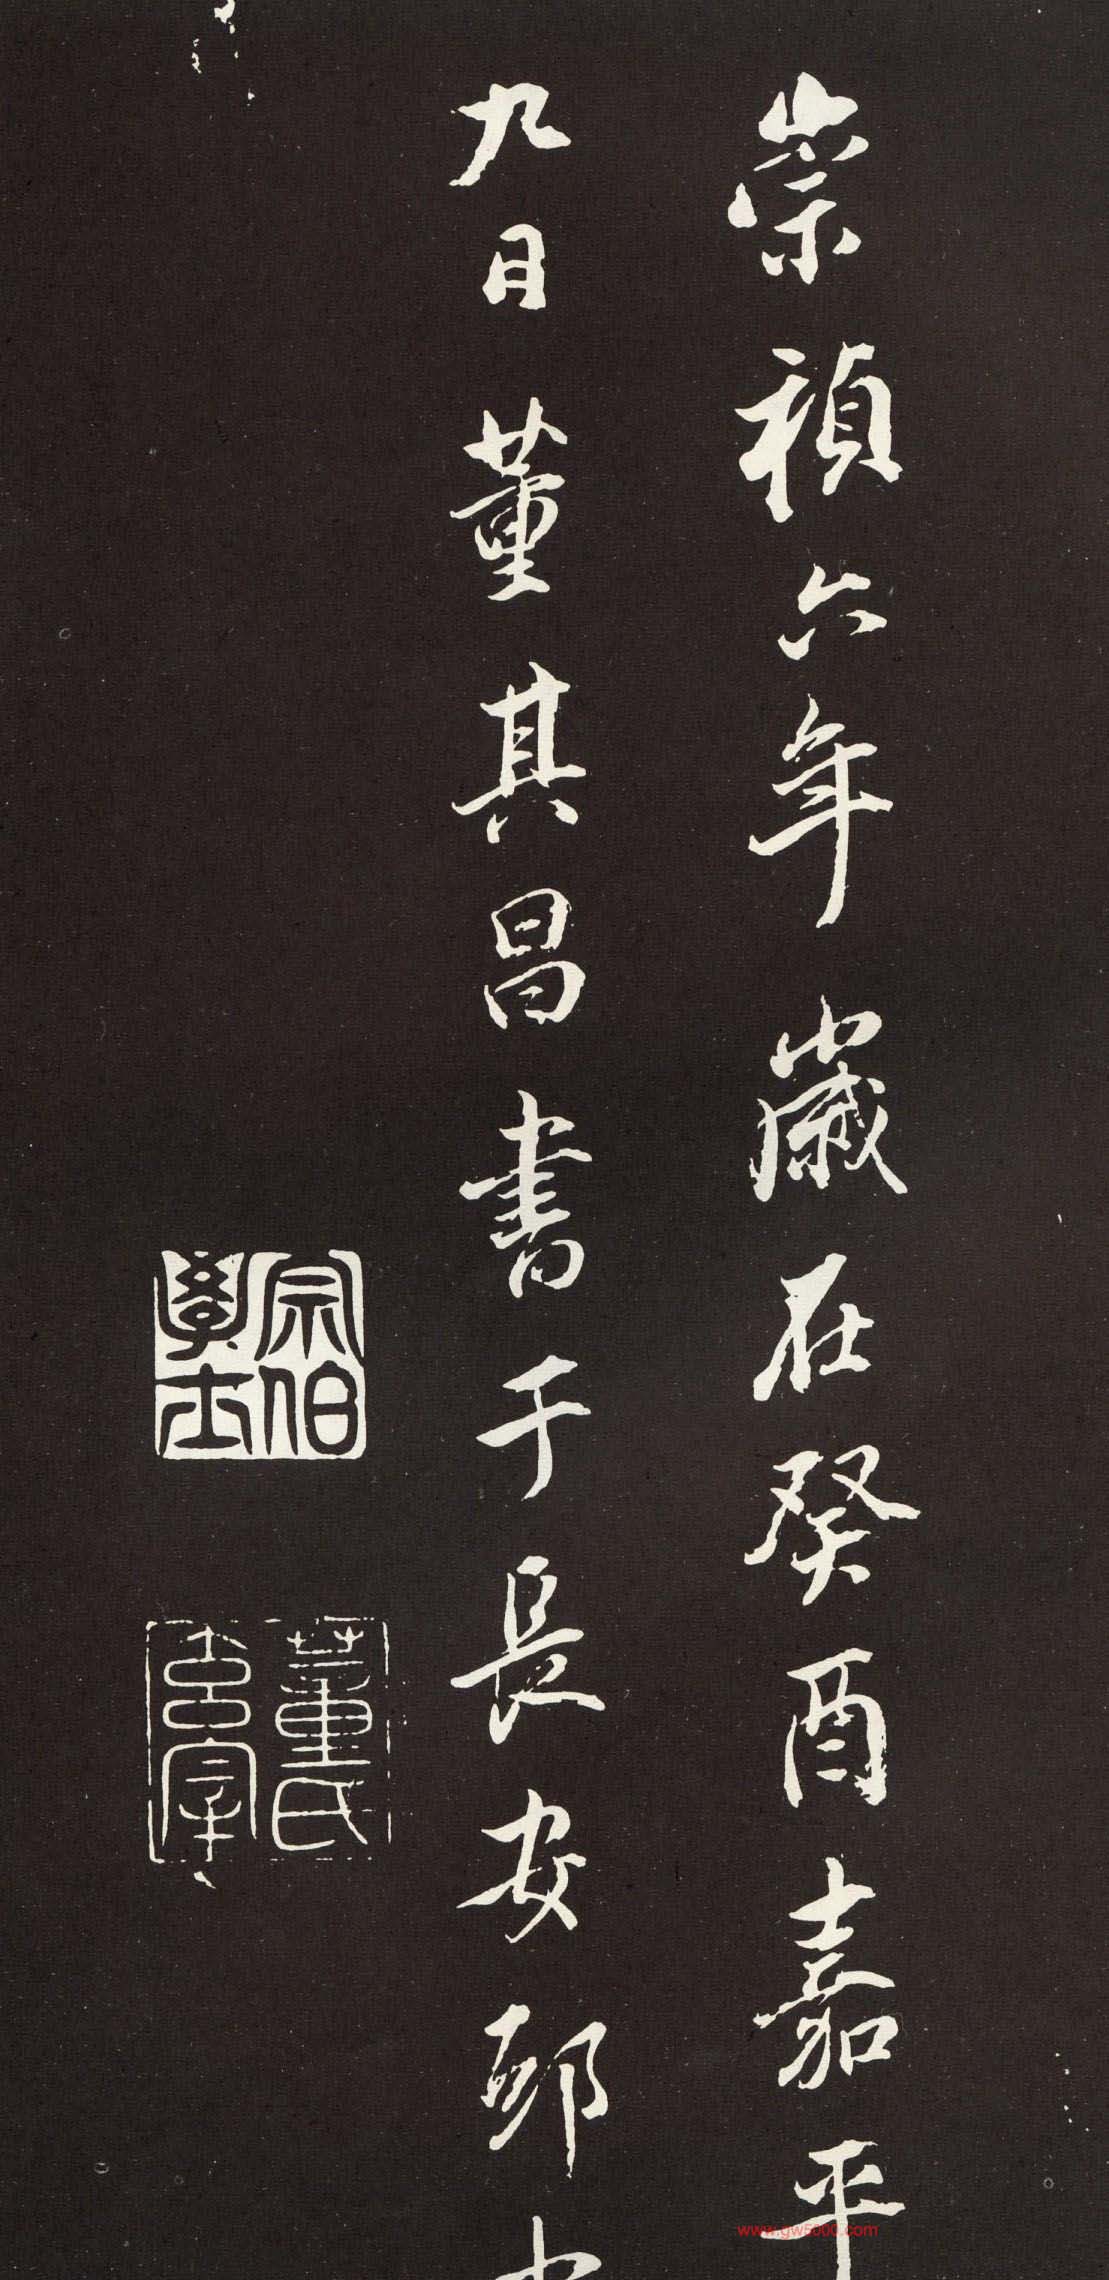 崇禎六年歲在癸酉嘉平
九日董其昌書于長安邸
宗伯
學士
董氏
玄宰
www.gw5000.com